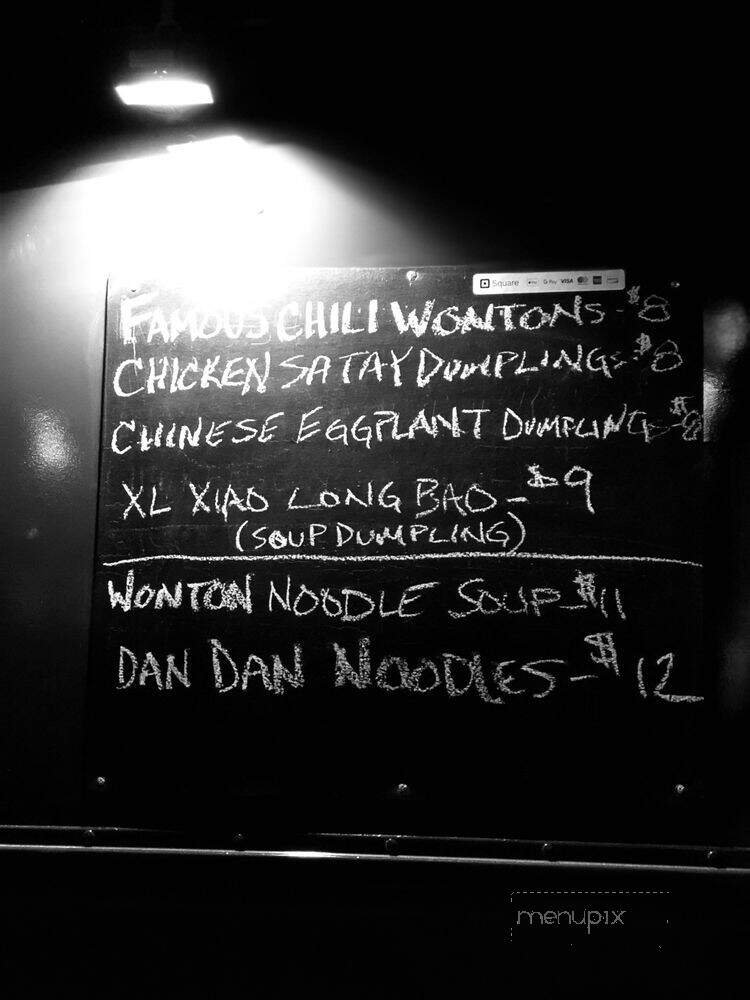 Square Pay G Pay VISA
FAMOUS CHILI WONTONS-$8
CHICKEN SATAY DUMPLINGS-$8
CHINESE EGGPLANT DUMPLINGS-$8
XL XIAO LONG BAO-$9
(SOUP DUMPLING)
WONTON NOODLE SOUP-$11
DAN DAN NOODLES-$12
menupix